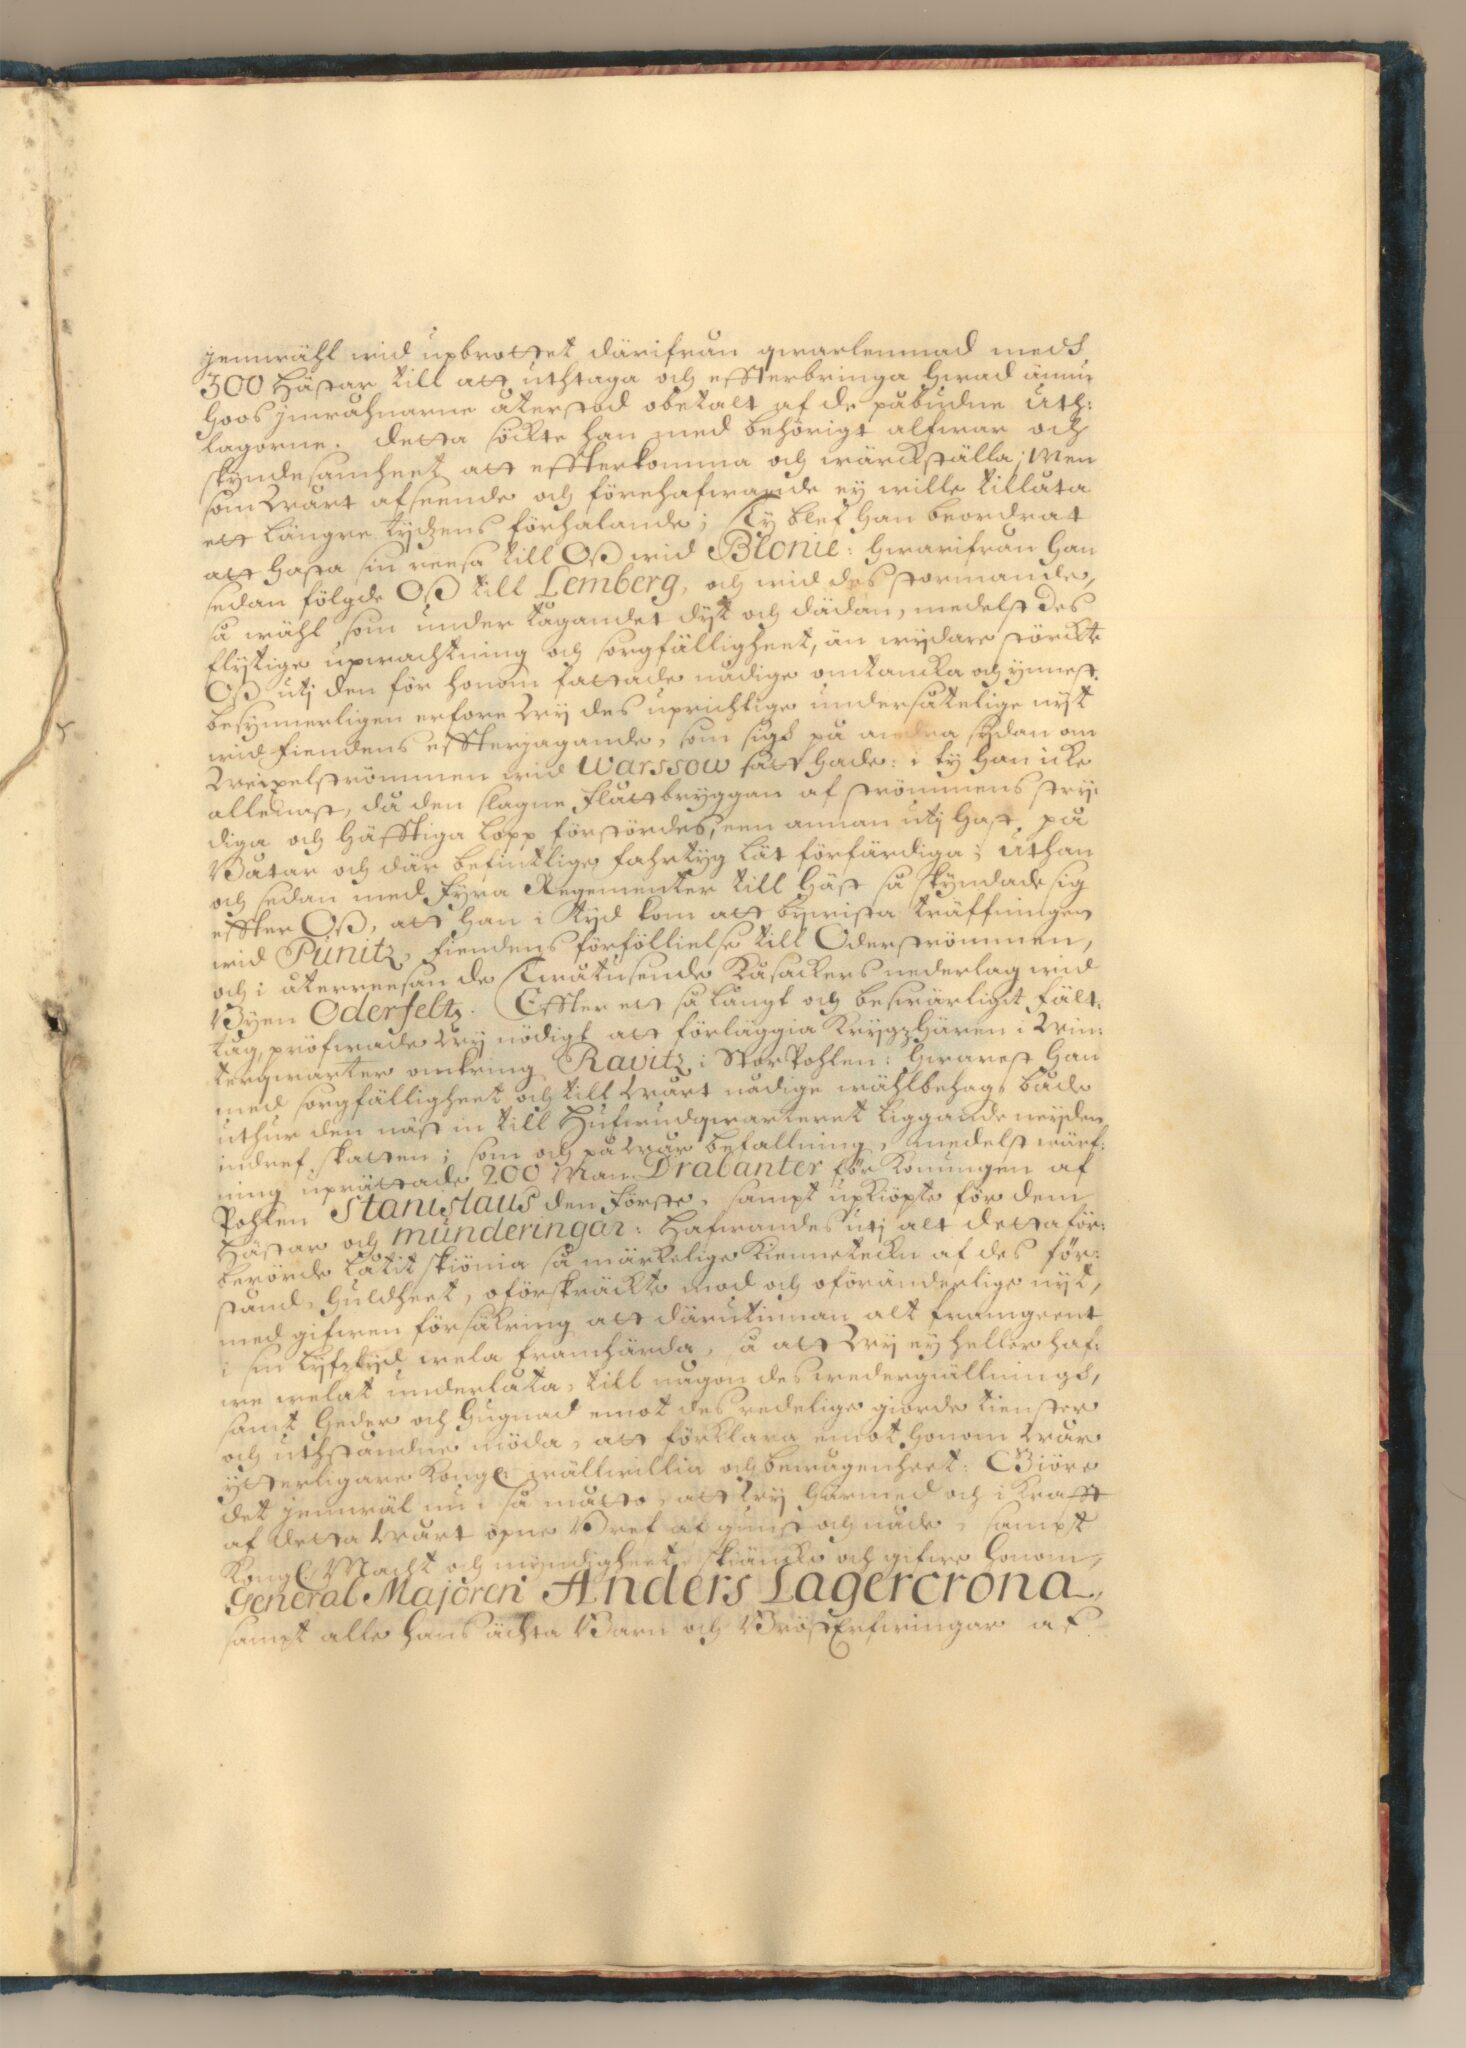 jemwähl wid upbrottet därifrån qwarlemnad med
300 Hästar till att uthtaga och effterbringa hwad ännu
hoos jnwåhnarne återstod obetalt af de påbudne Uth:
lagorne. Detta sökte han med behörigt alfwar och
skyndesamheet att effterkomma och wärckställa; Men
som Wårt afseende och förehafwande ey wille tillåta
ett längre tydzens förhalande; Ty blef han beordrat
att hasta sin reesa till Oß wid Blonie: hwarifrån han
sedan fölgde Oß till Lemberg, och wid des stormande,
så wähl som under tågandet dyt och dädan, medelst des
flytige upwachtning och sorgfälligheet, än wydare störckte
Oß utj den för honom fattade nådige omtancka och ynnest.
besynnerligen erfore Wy des uprichtige undersåtelige nyt
wid fiendens effterjagande, som sigh på andra sydan om
Weixelströmmen wid Warssow satt hade: i ty han icke
allenast, då den slagne Flåttbryggan af strömmens stry:
diga och häfftiga lopp förstördes, een annan utj hast på
Båtar och där befintlige fahrtyg lät förfärdiga; Uthan
och sedan med Fyra Regementer till häst så skyndade sig
effter Oß, att han i tyd kom att bywista träffningen
wid Punitz, Fiendens förföllielse till Oderströmmen,
och i återreesan de Twåtusende Kåsackers nederlag wid
Byen Oderfeltz. Effter ett så långt och beswärligit fält:
tåg, pröfwade Wy nödigt att förläggia Krygzhären i Win:
terqwarter omkring Ravitz i StorPohlen: hwarest han
med sorgfälligheet och till Wårt nådige wählbehag både
uthur den näst in till Hufwudqwarteret liggande neyden
indref skatten; som och på Wår befallning, medelst wärf:
ning uprättade 200 Man Drabanter för Konungen af
Pohlen Stanislaus den Förste, sampt upkiöpte för dem
Hästar och munderingar: Hafwandes utj alt detta för:
berörde låtit skiönia så märkelige Kiennetecken af des för:
stånd, huldheet, oförskräckte mod och oföränderlige nyt,
med gifwen försäkring att därutinnan alt framgeent
i sin lyfztyd wela framhärda, så att Wy ey heller haf:
we welat underlåta, till någon des wedergiällningh,
samt heder och hugnad emot des redelige giorde tienster
och uthståndne möda, att förklara emot honom Wår
ytterligare Kongl. wällwillia och bewågenheet: Giöre
det jemwäl nu i så måtto, att Wy härmed och i Krafft
af detta Wårt öpne Bref af gunst och nåde, sampt
Kongl. Macht och myndigheet, skiäncke och gifwe honom,
General Majoren Anders Lagercrona,
sampt alle hans ächta Barn och BröstErfwingar af